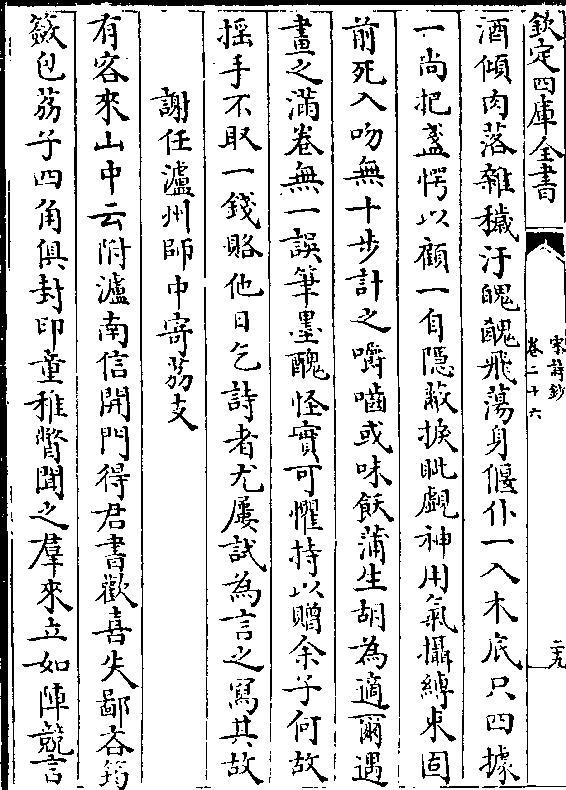 欽定四庫全書
宋詩鈔
卷二十六
二九
酒傾肉落雜穢汙魄醜飛蕩身偃仆一入木底只四據
一尚把盞愕以顧一自隱蔽捩眦覷神用氣攝縛束固
前死入吻無十步計之嚼嚙或味飫蒲生胡為適爾遇
畫之滿卷無一誤筆墨醜怪實可懼持以贈余子何故
揺手不取一錢賂他日乞詩者尤屢試為言之寫其故
謝任瀘州師中寄荔支
有客來山中云附瀘南信開門得君書歡喜失鄙吝筠
籢包荔子四角俱封印童稚瞥聞之羣來立如陣競言